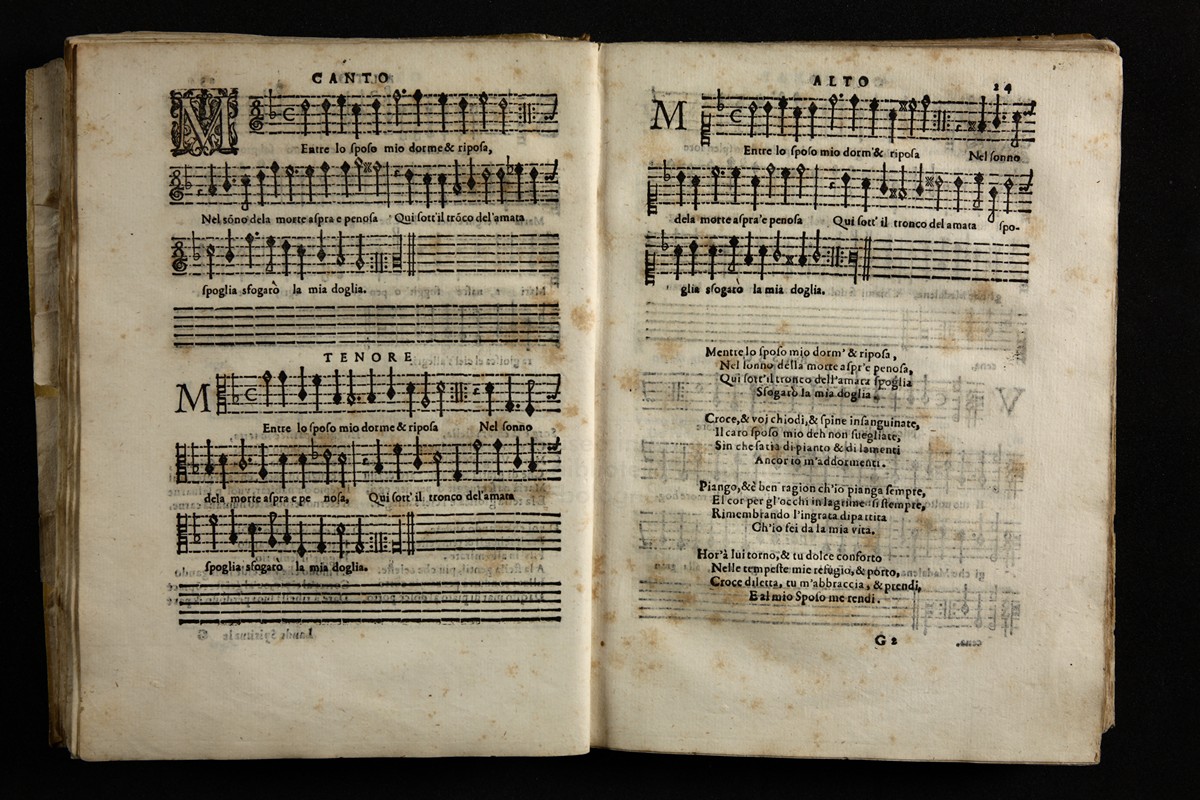 CANTO
M
Entre lo sposo mio dorme & riposa,
Nel sõno dela morte aspra e penosa Qui sott'il trõco del'amata
spoglia sfogarò la mia doglia.
TENORE
M
Entre lo sposo mio dorme & riposa Nel sonno
dela morte aspra e pe nosa, Qui sott' il tronco del'amata
spoglia sfogarò la mia doglia.
ALTO 24
M
Entre lo sposo mio dorm'& riposa Nel sonno
dela morte aspra'e penosa Qui sott' il tronco del amata spo-
glia sfogarò la mia doglia.
Mentre lo sposo mio dorm' & riposa,
Nel sonno della morte aspr'e penosa,
Qui sott'il tronco dell'amata spoglia
Sfogarò la mia doglia.
Croce,& voi chiodi,& spine insanguinate,
Il caro sposo mio deh non suegliate,
Sin che satia di pianto & di lamenti
Ancor io m'addormenti.
Piango,&è ben ragion ch'io pianga sempre,
El cor per gl'occhi in lagrime si stempre,
Rimembrando l'ingrata dipartita
Ch'io fei da la mia vita.
Hor'à lui torno,& tu dolce conforto
Nelle tempeste mie refugio,& porto,
Croce diletta, tu m'abbraccia, & prendi,
E al mio Sposo me rendi.
G 2